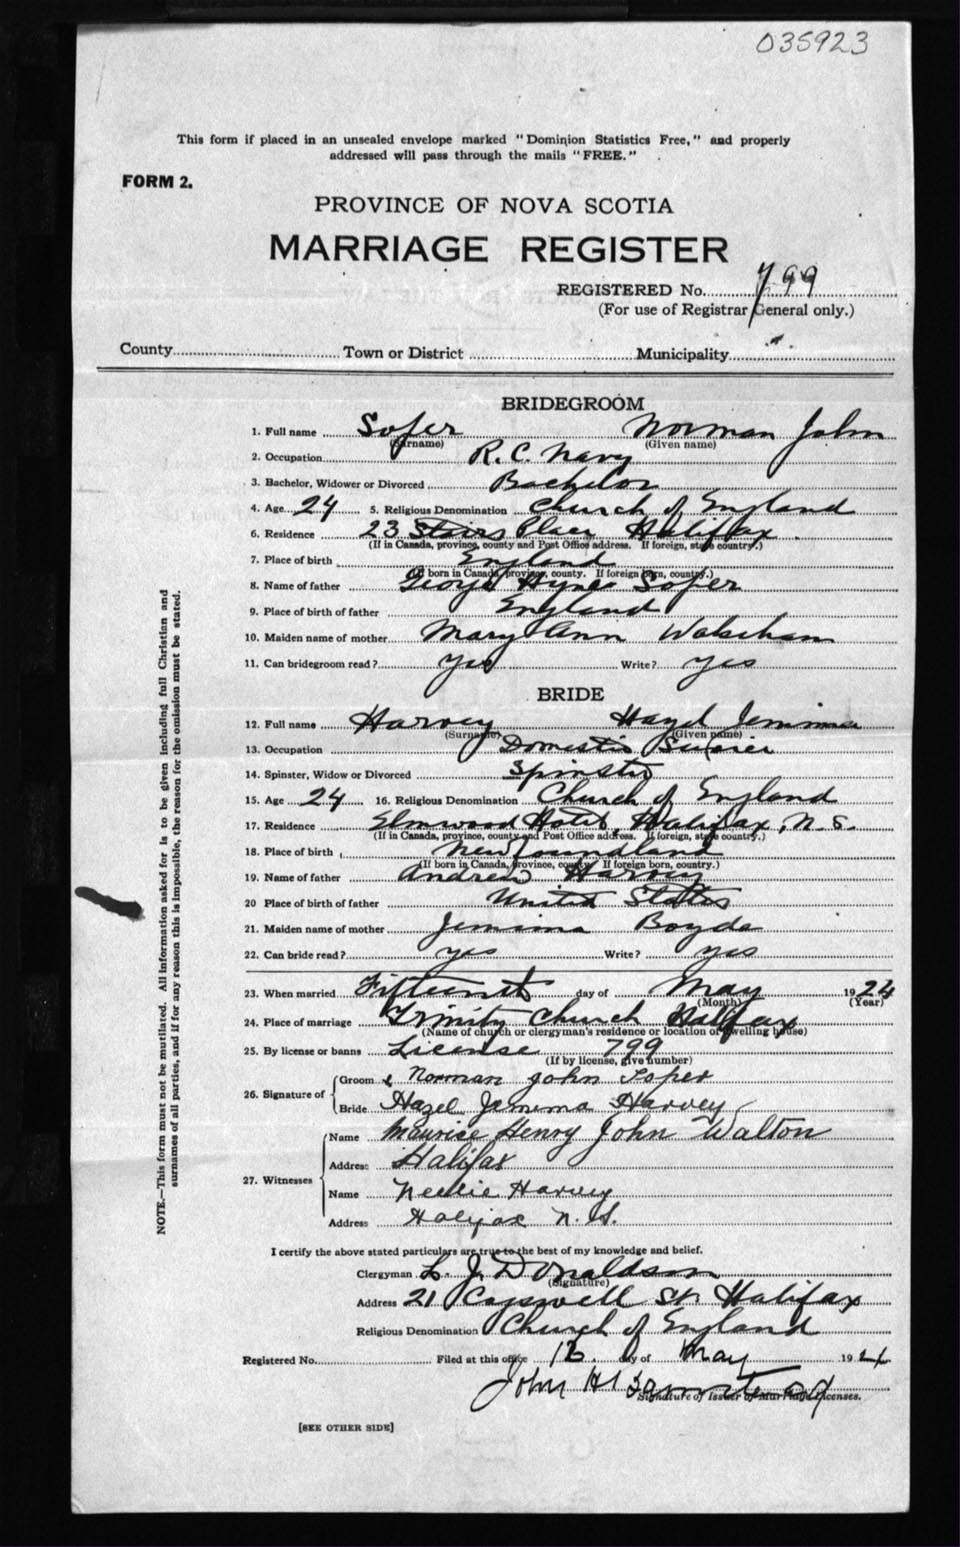 035923
This form if placed in an unsealed envelope marked "Dominion Statistics Free," and properly
addressed will pass through the mails "FREE."
FORM 2.
PROVINCE OF NOVA SCOTIA
MARRIAGE REGISTER
REGISTERED No. 799
(For use of Registrar General only.)
County Town or District Municipality
BRIDEGROOM
1. Full name Soper Norman John
(Surname) (Given name)
2. Occupation R. C. Navy
3. Bachelor, Widower or Divorced Bachelor
4. Age 24 5. Religious Denomination Church of England
6. Residence 23 Stairs Place Halifax
(If in Canada, province, county and Post Office address. If foreign, state country.)
7. Place of birth England
(If born in Canada, province, county. If foreign born, country.)
8. Name of father George Hynes Soper
9. Place of birth of father England
10. Maiden name of mother Mary Ann
11. Can bridegroom read? yes Write? yes
BRIDE
12. Full name Harvey Hazel Jemima
(Surname) (Given name)
13. Occupation Domestic
14. Spinster, Widow or Divorced Spinster
15. Age 24 16. Religious Denomination Church of England
17. Residence Elmwood Hotel, Halifax, N. S.
(If in Canada, province, county and Post Office address. If foreign, state country.)
18. Place of birth Newfoundland
(If born in Canada, province, county If foreign born, country.)
19. Name of father Andrew Harvey
20 Place of birth of father United States
21. Maiden name of mother Jemima Boyde
22. Can bride read? yes Write? yes
23. When married Fifteenth day of May 1924
(Month) (Year)
24. Place of marriage Trinity Church Halifax
(Name of church or clergyman's residence or location of dwelling house)
25. By license or banns License 799
(If by license, give number)
26. Signature of
Groom Norman John Soper
Bride Hazel Jemima Harvey
27. Witnesses
Name Maurice Henry John Walton
Address Halifax
Name Neelie Harvey
Address Halifax N. S.
I certify the above stated particulars are true to the best of my knowledge and belief.
Clergyman L. J. Donaldson
(Signature)
Address 21 Cogswell St. Halifax
Religious Denomination Church of England
Registered No. Filed at this office 16. day of May 1924
John H
Signature of Issuer of Marriage Licenses.
[SEE OTHER SIDE]
NOTE.—This form must not be mutilated. All information asked for is to be given including full Christian and
surnames of all parties, and if for any reason this is impossible, the reason for the omission must be stated.